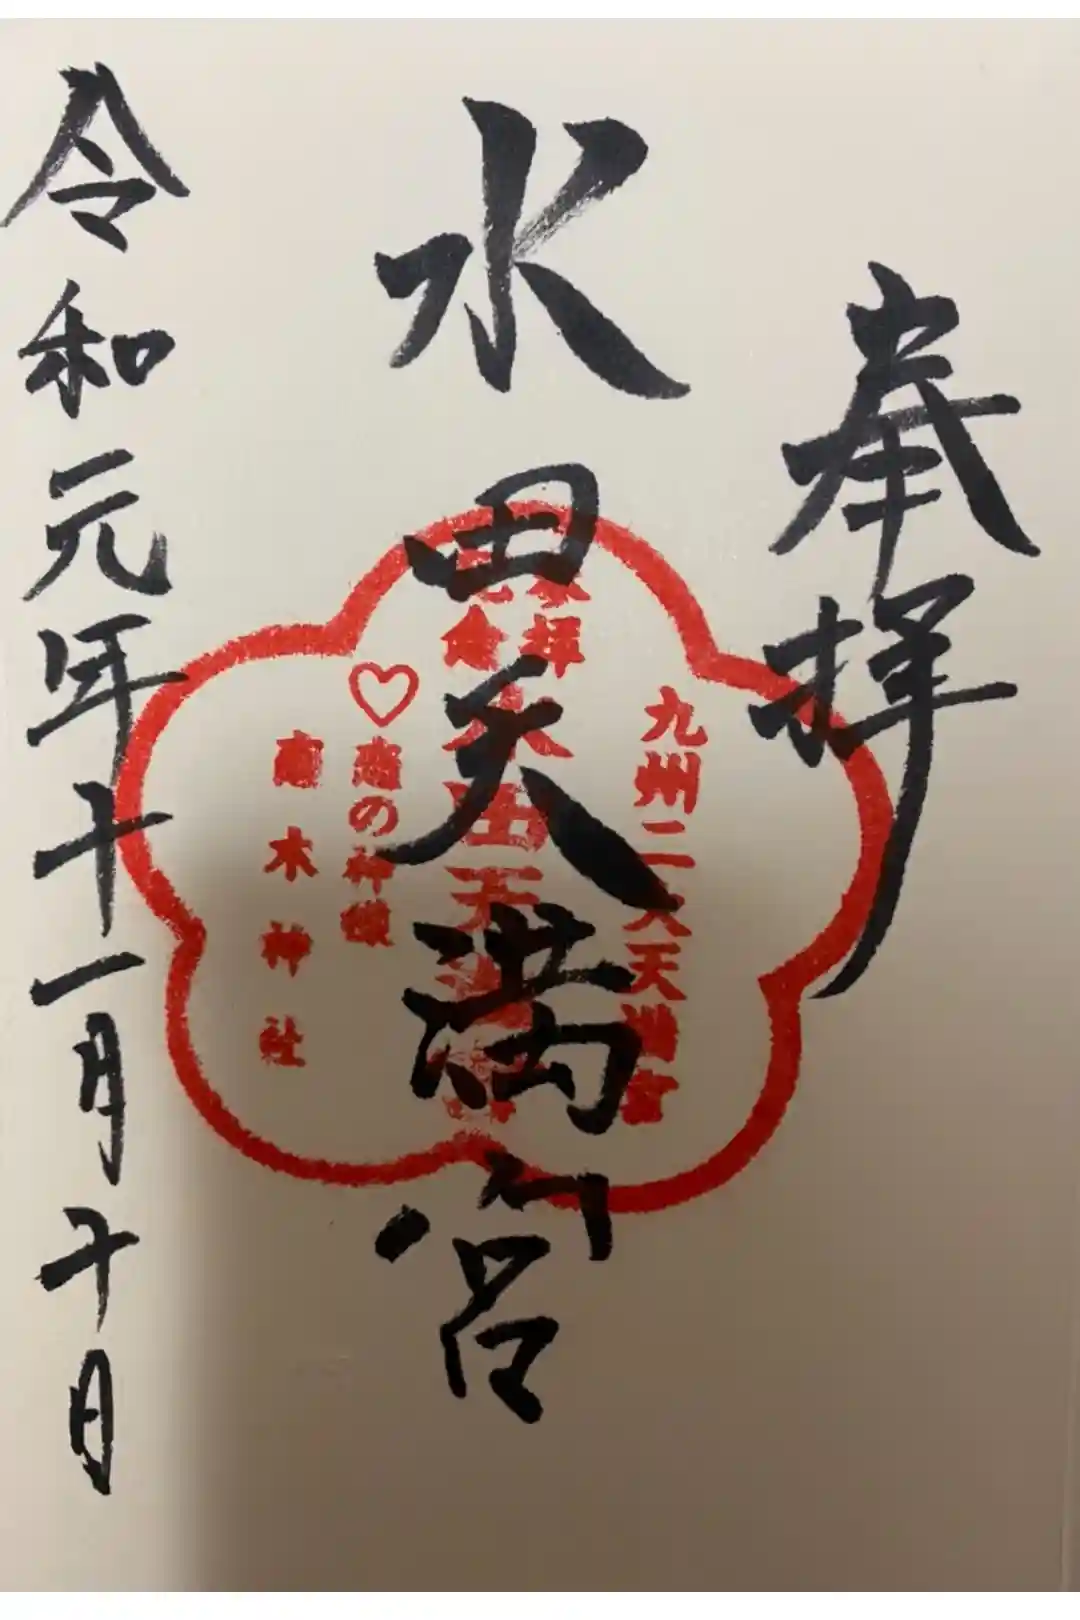 奉拝
水田天満宮
令和元年十一月十日
九州二大天満宮
参拝
記念
水田天満宮
♡恋の神様
恋木神社